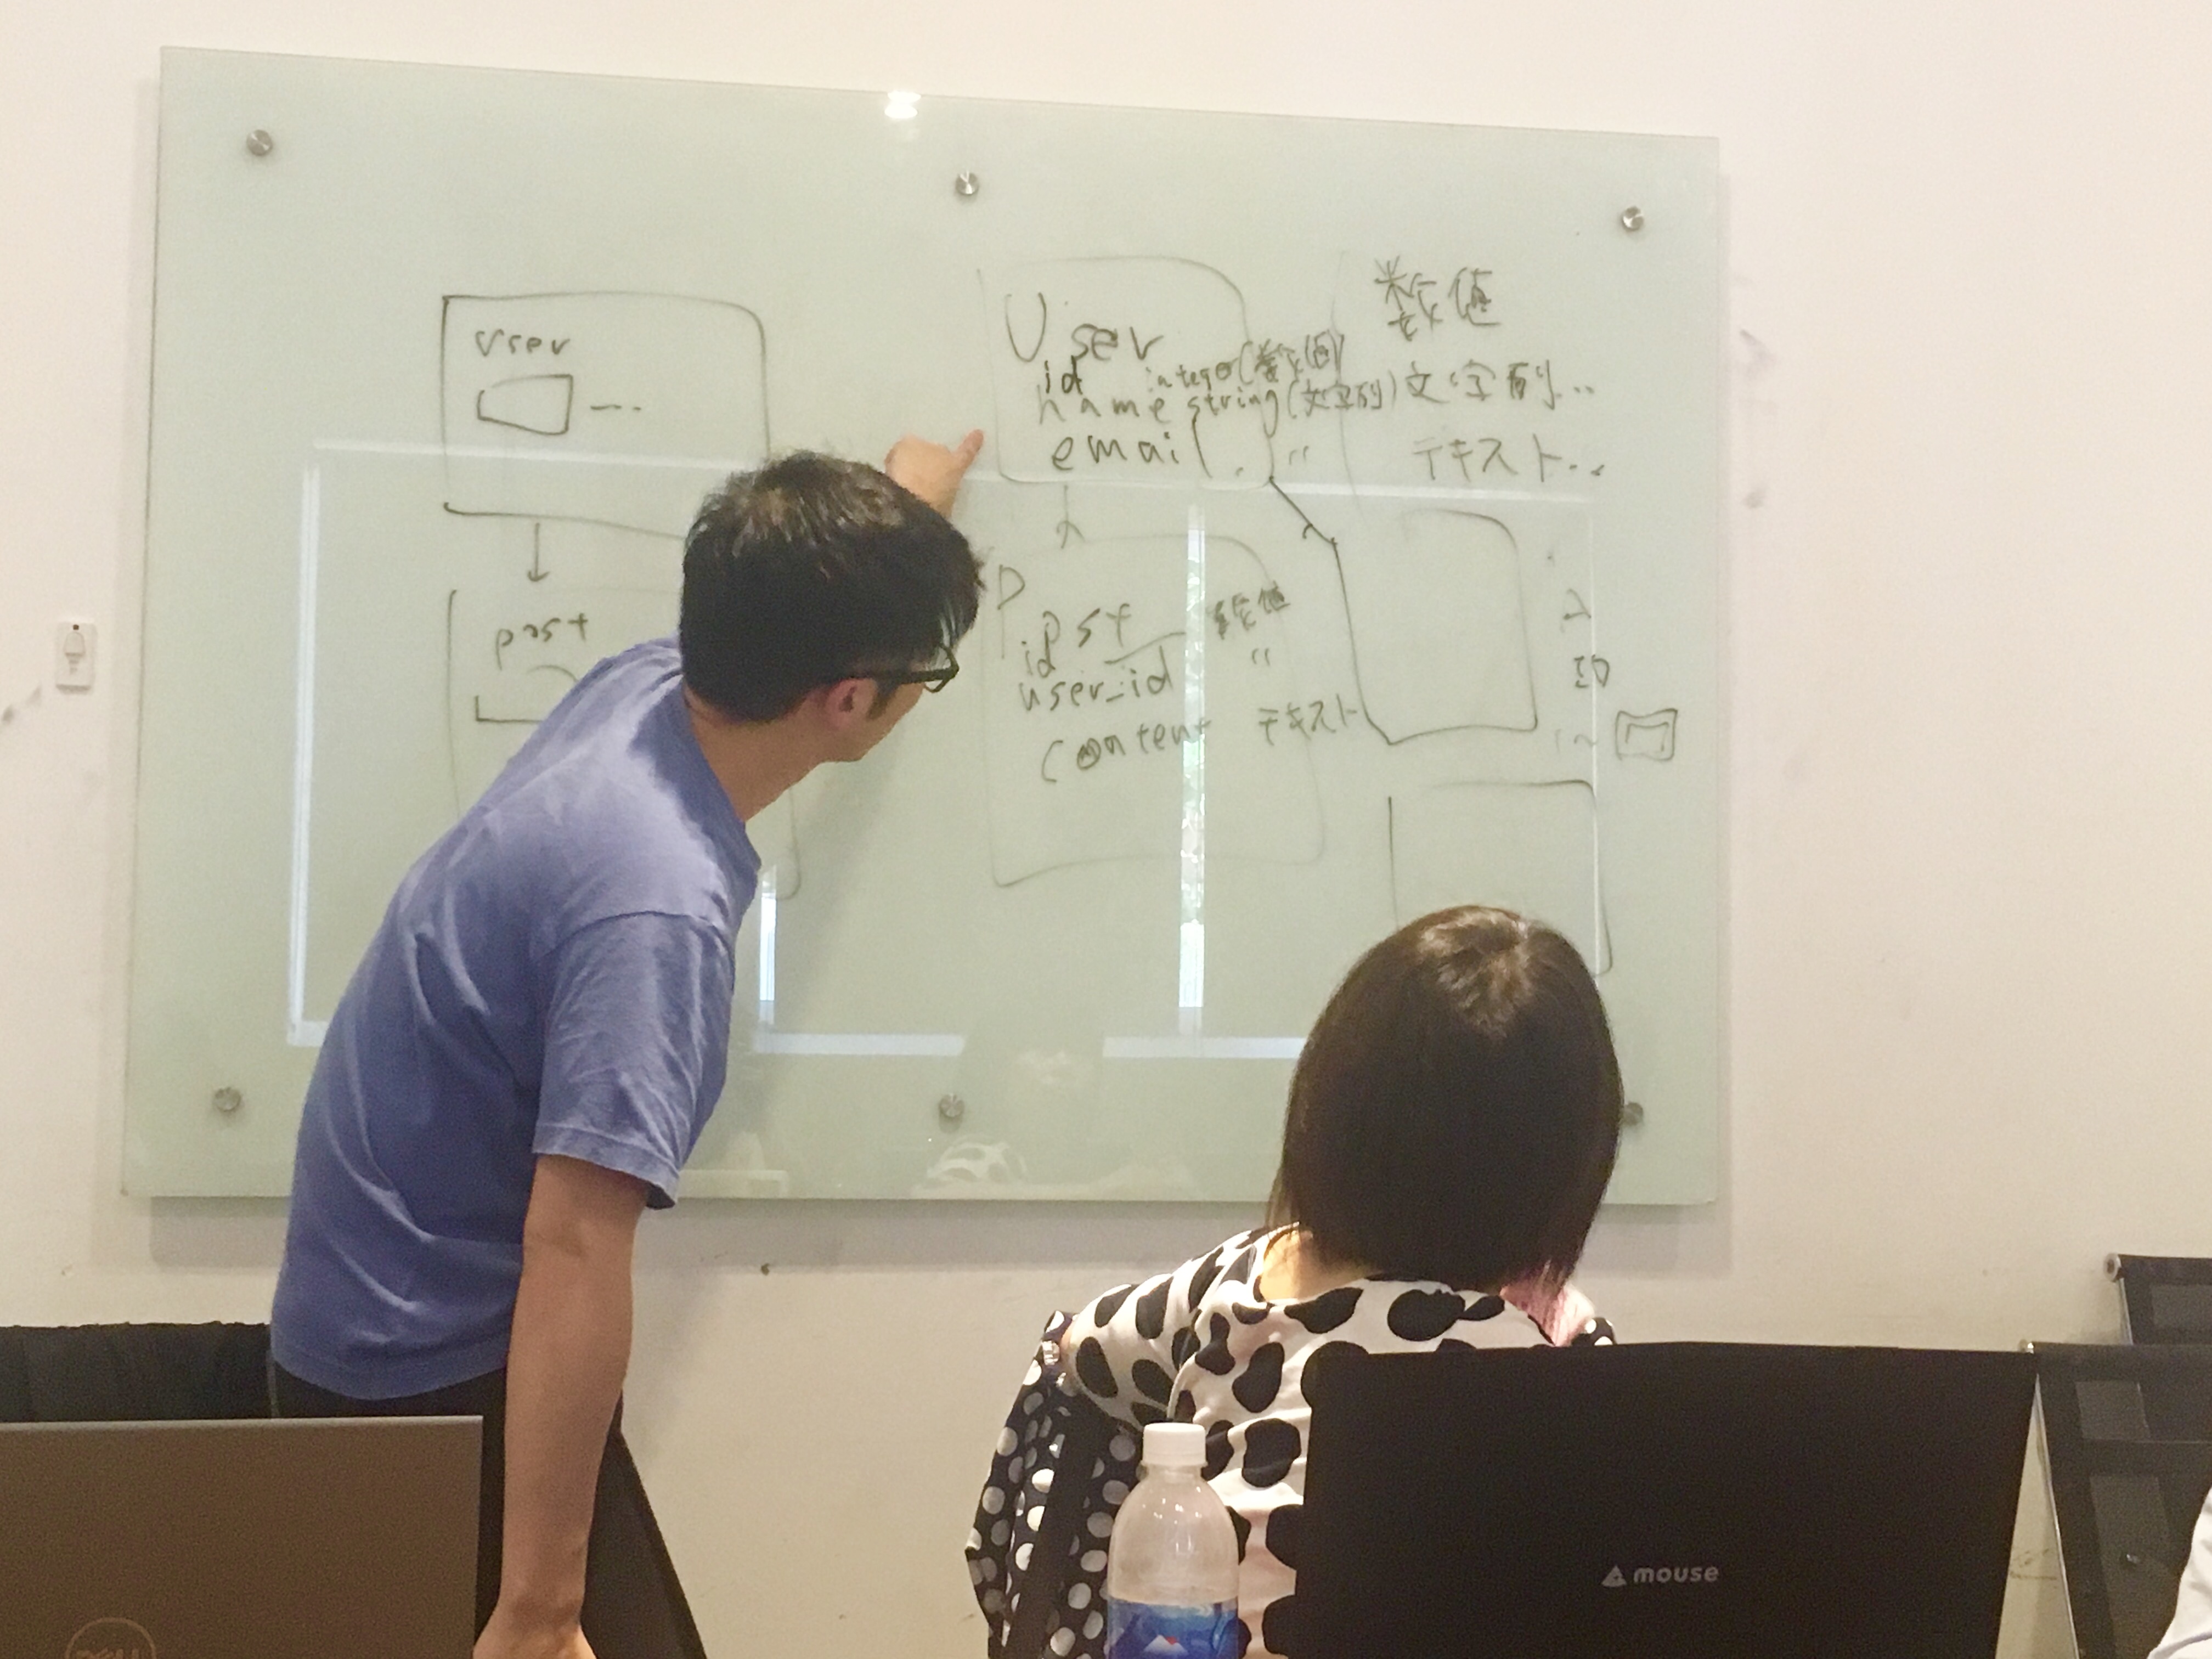 User
post
User
id integer(数値)
name string(文字列)
email 〃
数値
文字列...
テキスト...
Post
id 数値
user_id 〃
content テキスト
mouse
DELL